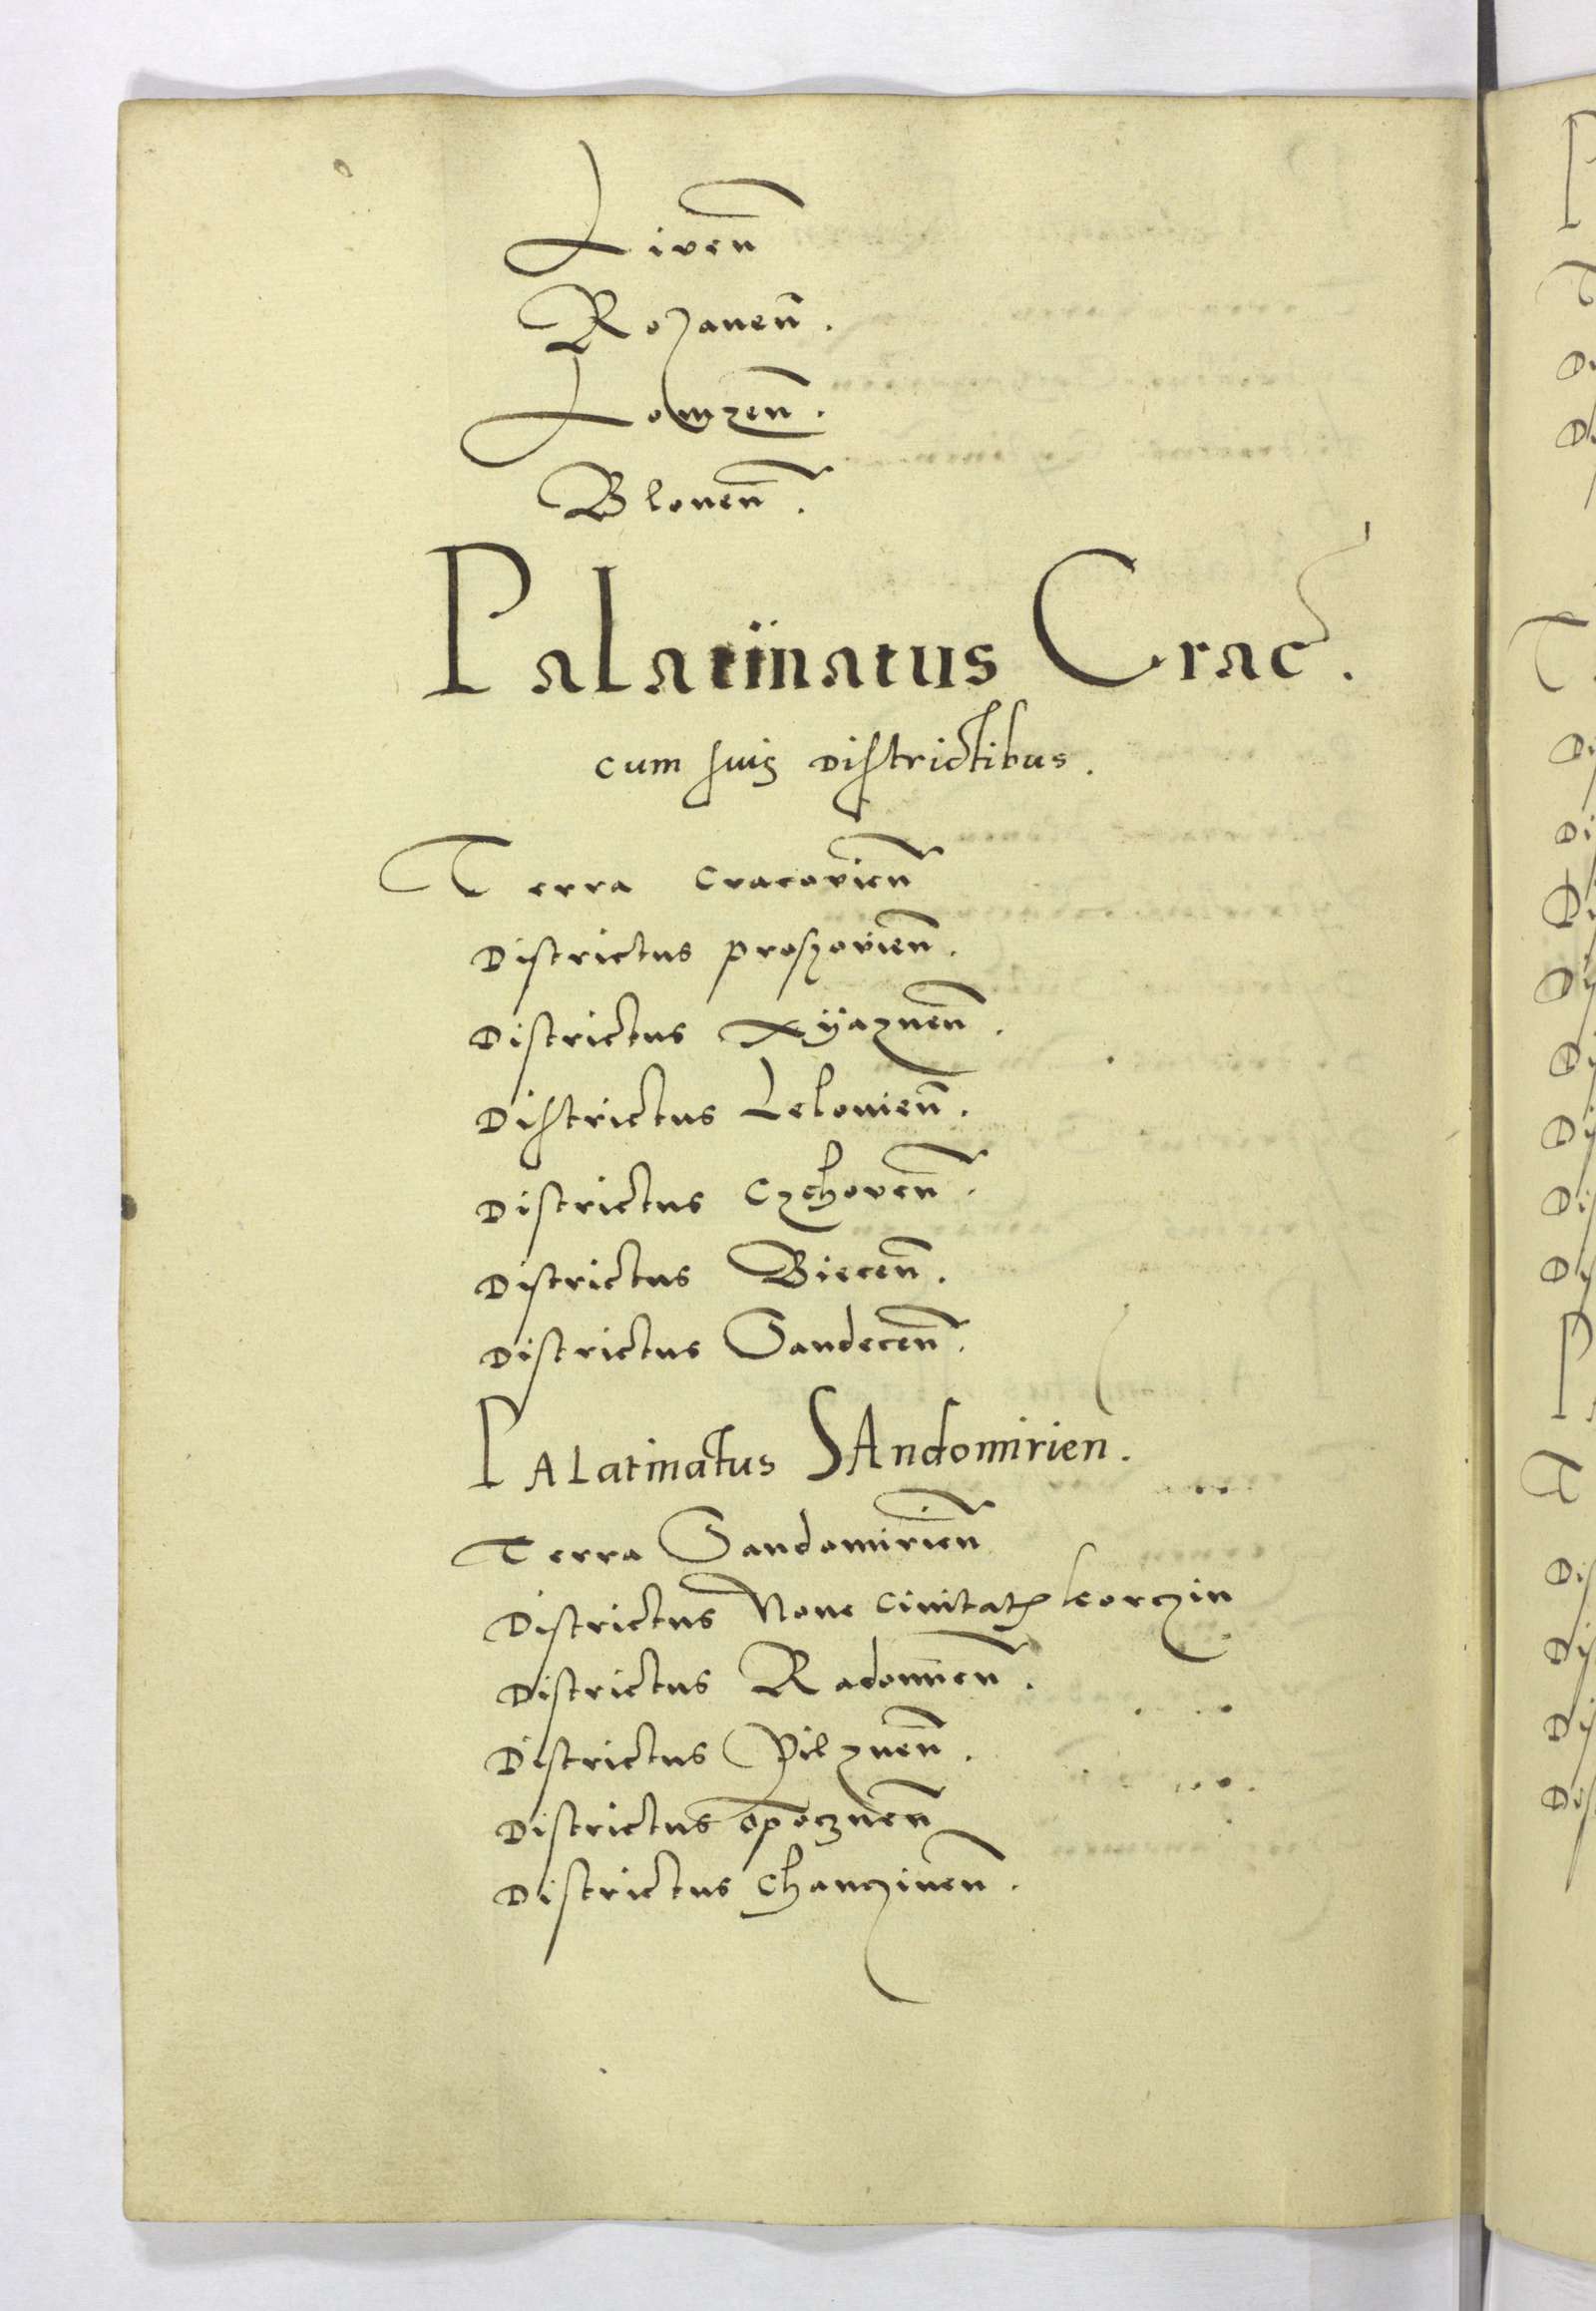 Liven
Rozanen.
Lomzen.
Blonen.
Palatinatus Crac.
cum suis districtibus.
Terra Cracovien
Districtus proszovien.
Districtus Xyąznen.
Districtus Lelovien.
Districtus Czchoven.
Districtus Biecen.
Districtus Sandecen.
Palatinatus SAndomirien.
Terra Sandomirien
Districtus Nove Civitatis korczin
Districtus Radomien.
Districtus Pilznen.
Districtus opocznen
Districtus Chancinen.